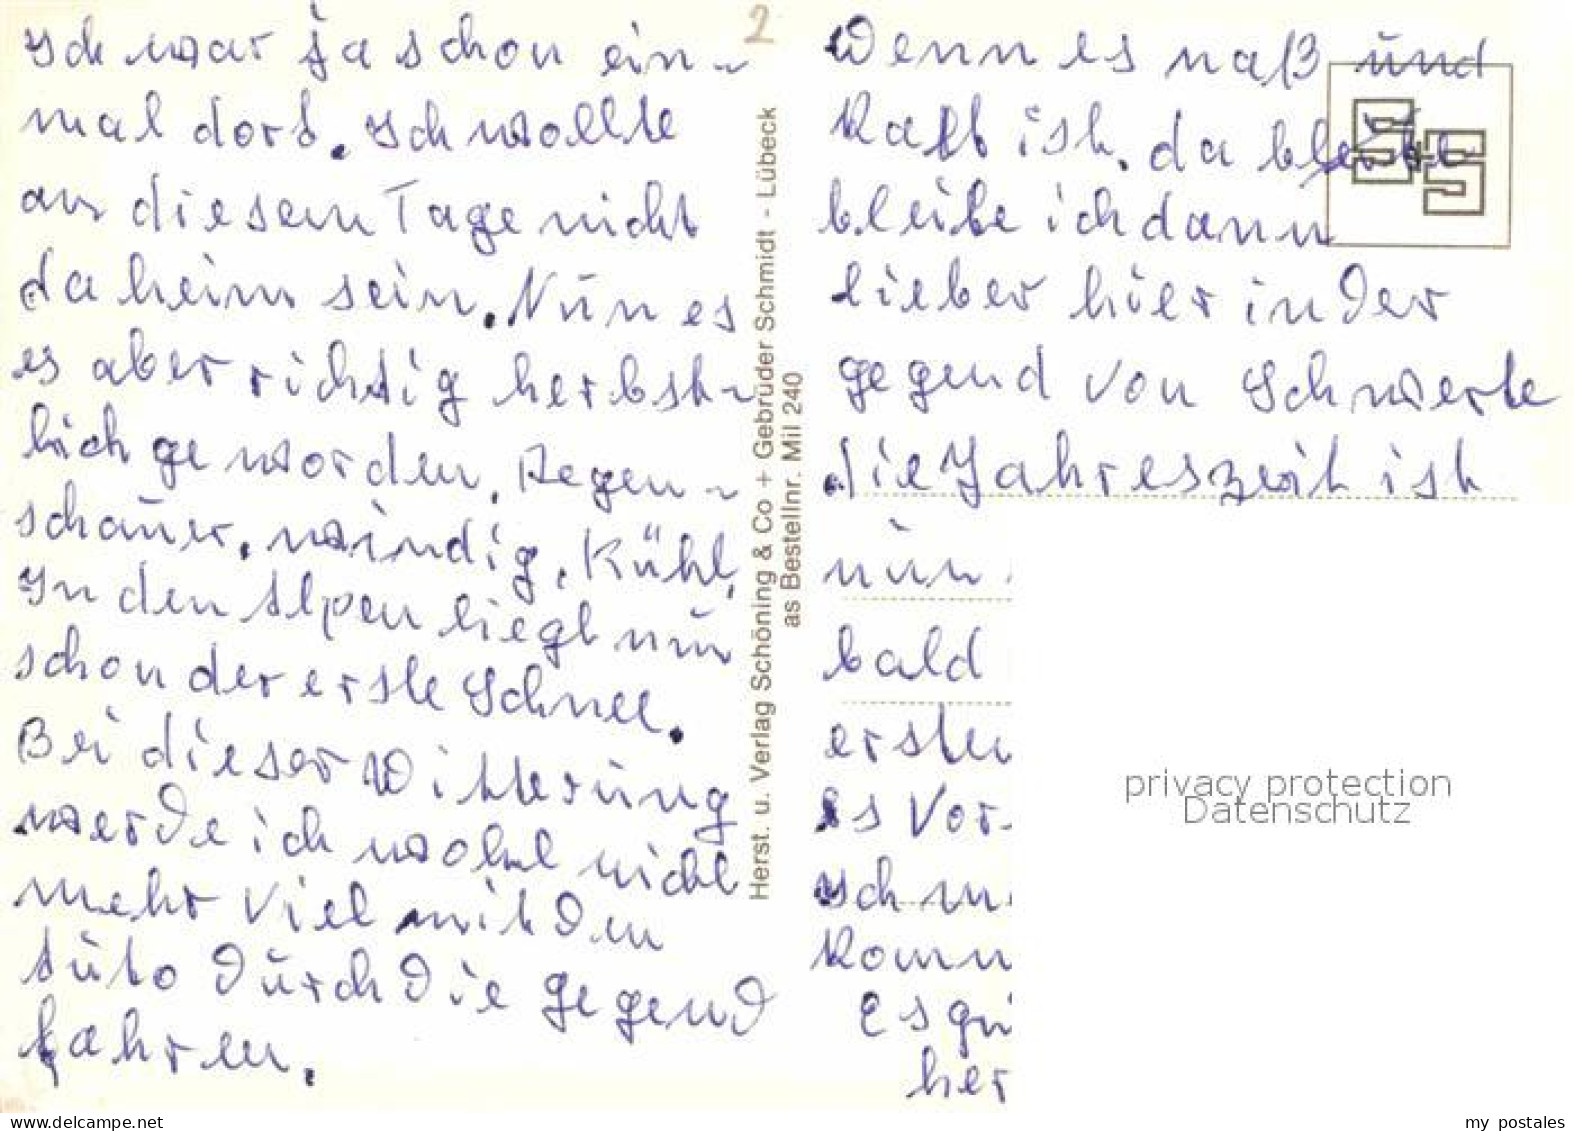 Ich war ja schon ein-
mal dort. Ich wollte
an diesem Tage nicht
daheim sein. Nun es
es aber richtig herbst-
lich geworden. Regen-
schauer, windig, kühl,
In den Alpen liegt nun
schon der erste Schnee.
Bei dieser Witterung
werde ich wohl nicht
mehr viel mit den
Auto durch die gegend
fahren.
2
Herst. u. Verlag Schöning & Co + Gebrüder Schmidt - Lübeck
as Bestellnr. Mil 240
Wenn es naß und
kalt ist, da
bleibe ich dann
lieber hier in der
gegend von Schwerte
die Jahreszeit ist
nun
bald
ersten
es Vor-
Ich
komm
Es grü
her
privacy protection
Datenschutz
www.delcampe.net
my_postales